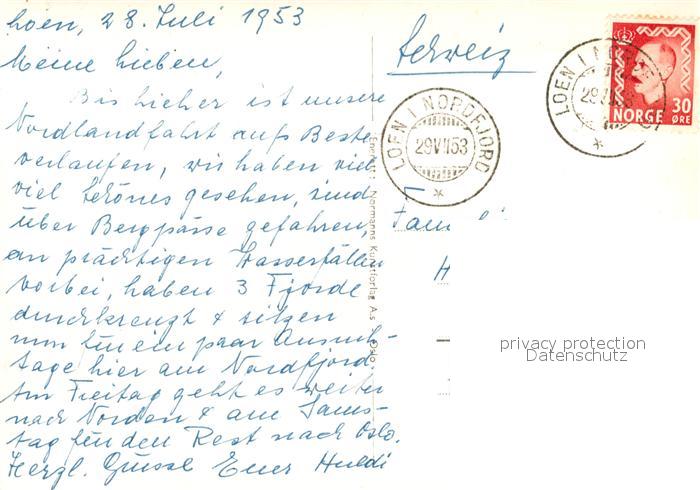 Loen, 28. Juli 1953
Meine Lieben,
Bis hieher ist unsere
Nordlandfahrt aufs Beste
verlaufen, wir haben viel,
viel Schönes gesehen, sind
über Bergpässe gefahren,
an prächtigen Wasserfällen
vorbei, haben 3 Fjorde
durchkreuzt & sitzen
nun für ein paar Ausruh-
tage hier am Nordfjord
Am Freitag geht es weiter
nach Norden & am Sams-
tag für den Rest nach Oslo.
Herzl. Grüsse Euer Huldi
Schweiz
Fam
H
LOEN I NORDFJORD
29 VII 53
LOEN I NORDFJORD
29
NORGE
30
ØRE
Normanns Kunstforlag As. Oslo.
privacy protection
Datenschutz